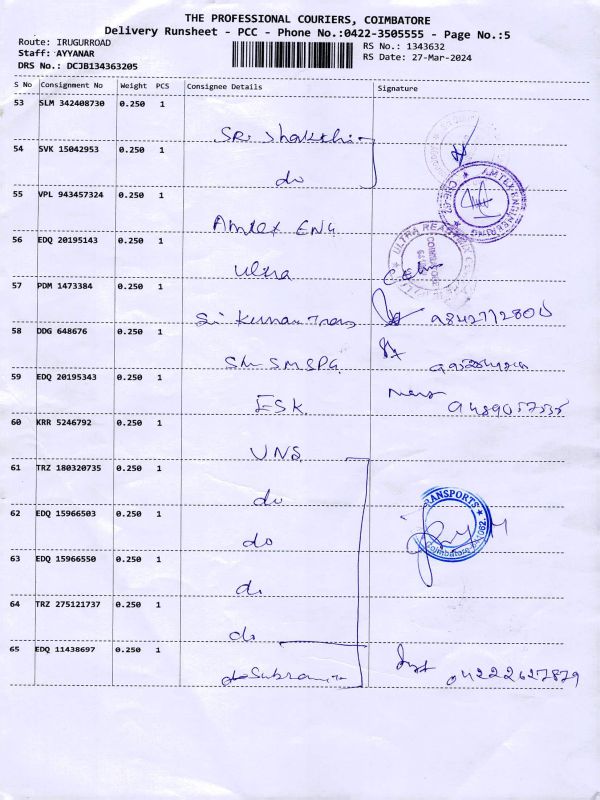 THE PROFESSIONAL COURIERS, COIMBATORE
Delivery Runsheet - PCC - Phone No.:0422-3505555 - Page No.:5
Route: IRUGURROAD
RS No.: 1343632
Staff: AYYANAR
RS Date: 27-Mar-2024
DRS No.: DCJB134363205
S No Consignment No Weight PCS Consignee Details Signature
53 SLM 342408730 0.250 1
Sri Shakthi
54 SVK 15042953 0.250 1
do
55 VPL 943457324 0.250 1
AMTEX ENGINEERING
Amtex ENG
56 EDQ 20195143 0.250 1
ULTRA READY
Ultra
57 PDM 1473384 0.250 1
Sri Kumaran Trans 9842712800
58 DDG 648676 0.250 1
SMSPG
59 EDQ 20195343 0.250 1
ESK 9489057535
60 KRR 5246792 0.250 1
UNS
61 TRZ 180320735 0.250 1
do
TRANSPORTS
62 EDQ 15966503 0.250 1
do
Coimbatore
63 EDQ 15966550 0.250 1
do
64 TRZ 275121737 0.250 1
do
65 EDQ 11438697 0.250 1
04222627879